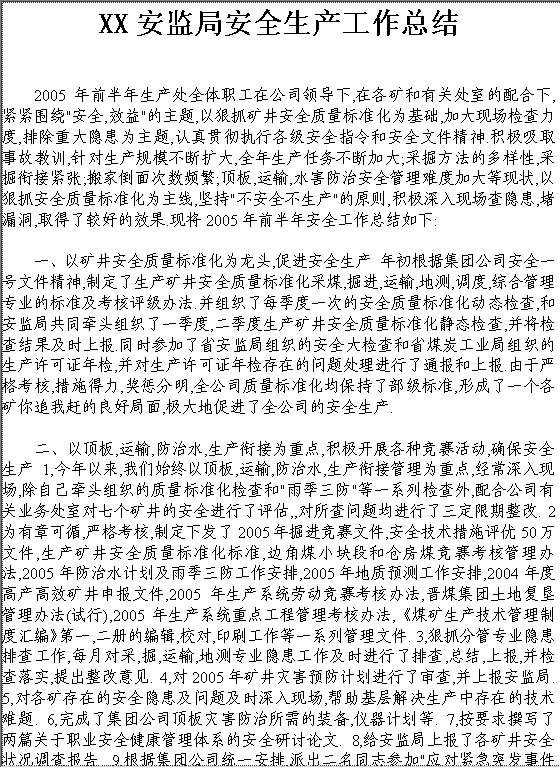 XX安监局安全生产工作总结
2005 年前半年生产处全体职工在公司领导下,在各矿和有关处室的配合下,
紧紧围绕"安全,效益"的主题,以狠抓矿井安全质量标准化为基础,加大现场检查力
度,排除重大隐患为主题,认真贯彻执行各级安全指令和安全文件精神.积极吸取
事故教训,针对生产规模不断扩大,全年生产任务不断加大;采掘方法的多样性,采
掘衔接紧张;搬家倒面次数频繁;顶板,运输,水害防治安全管理难度加大等现状,以
狠抓安全质量标准化为主线,坚持"不安全不生产"的原则,积极深入现场查隐患,堵
漏洞,取得了较好的效果.现将 2005 年前半年安全工作总结如下:
一、以矿井安全质量标准化为龙头,促进安全生产 年初根据集团公司安全一
号文件精神,制定了生产矿井安全质量标准化采煤,掘进,运输,地测,调度,综合管理
专业的标准及考核评级办法.并组织了每季度一次的安全质量标准化动态检查,和
安监局共同牵头组织了一季度,二季度生产矿井安全质量标准化静态检查,并将检
查结果及时上报.同时参加了省安监局组织的安全大检查和省煤炭工业局组织的
生产许可证年检,并对生产许可证年检存在的问题处理进行了通报和上报.由于严
格考核,措施得力,奖惩分明,全公司质量标准化均保持了部级标准,形成了一个各
矿你追我赶的良好局面,极大地促进了全公司的安全生产.
二、以顶板,运输,防治水,生产衔接为重点,积极开展各种竞赛活动,确保安全
生产 1,今年以来,我们始终以顶板,运输,防治水,生产衔接管理为重点,经常深入现
场,除自己牵头组织的质量标准化检查和"雨季三防"等一系列检查外,配合公司有
关业务处室对七个矿井的安全进行了评估,对所查问题均进行了三定限期整改. 2
为有章可循,严格考核,制定下发了 2005年掘进竞赛文件,安全技术措施评优 50万
文件,生产矿井安全质量标准化标准,边角煤小块段和仓房煤竞赛考核管理办
法,2005 年防治水计划及雨季三防工作安排,2005 年地质预测工作安排,2004 年度
高产高效矿井申报文件,2005 年生产系统劳动竞赛考核办法,晋煤集团土地复垦
管理办法(试行),2005 年生产系统重点工程管理考核办法,《煤矿生产技术管理制
度汇编》第一,二册的编辑,校对,印刷工作等一系列管理文件. 3,狠抓分管专业隐患
排查工作,每月对采,掘,运输,地测专业隐患工作及时进行了排查,总结,上报,并检
查落实,提出整改意见. 4,对 2005 年矿井灾害预防计划进行了审查,并上报安监局.
5,对各矿存在的安全隐患及问题及时深入现场,帮助基层解决生产中存在的技术
难题. 6,完成了集团公司顶板灾害防治所需的装备,仪器计划等. 7,按要求撰写了
两篇关于职业安全健康管理体系的安全研讨论文. 8,给安监局上报了各矿井安全
状况调查报告. 9,根据集团公司统一安排,派出二名同志参加"应对紧急突发事件